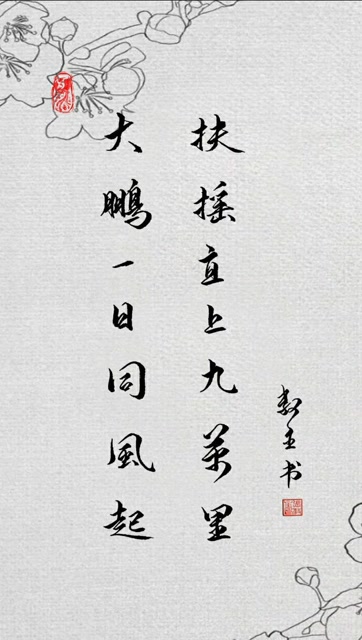 大鹏一日同風起
扶摇直上九萬里
书